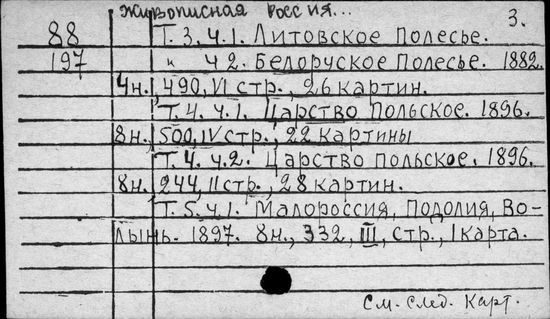 Живописная Россия... 3.
88 Т. 3. ч.1. Литовское Полесье.
197 " ч 2. Белоруское Полесье. 1882.
4н. 490, VI стр., 26 картин.
Т. 4. ч.1. Царство Польское. 1896.
8н. 500, IV стр., 22 картины
Т. 4. ч.2. Царство польское. 1896.
8н. 244, II стр., 28 картин.
Т. 5. ч.1. Малороссия, Подолия, Во-
лынь. 1897. 8н., 332, III, стр., 1 карта.
См. след. Карт.